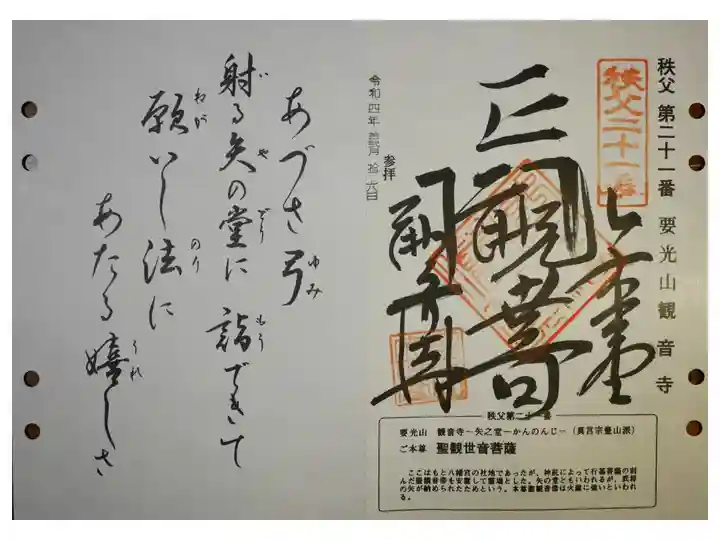 秩父 第二十一番 要光山観音寺
秩父二十一番
正観音
令和四年
参拝
あづさ弓
ゆみ
射る矢の堂に 詣できて
い や どう もう
願いし法に
ねが のり
あたる嬉しさ
うれ
秩父第二十一番
要光山 観音寺〜矢之堂−かんのんじ−(真言宗豊山派)
ご本尊 聖観世音菩薩
ここはもと八幡宮の社地であったが、神託によって行基菩薩の刻
んだ聖観音帝を安置して霊場とした。矢の堂ともいわれるが、武将
の矢が納められたためという。本尊聖観音像は火難に強いといわれ
る。